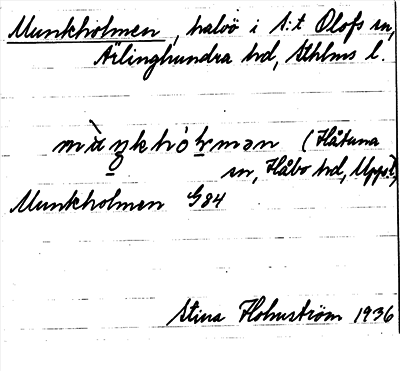 Munkholmen, halvö i S:t Olofs sn,
Ärlinghundra hd, Sthlms l.
(Håtuna
sn, Håbo hd, Upps. l)
Munkholmen G84
Stina Holmström 1936